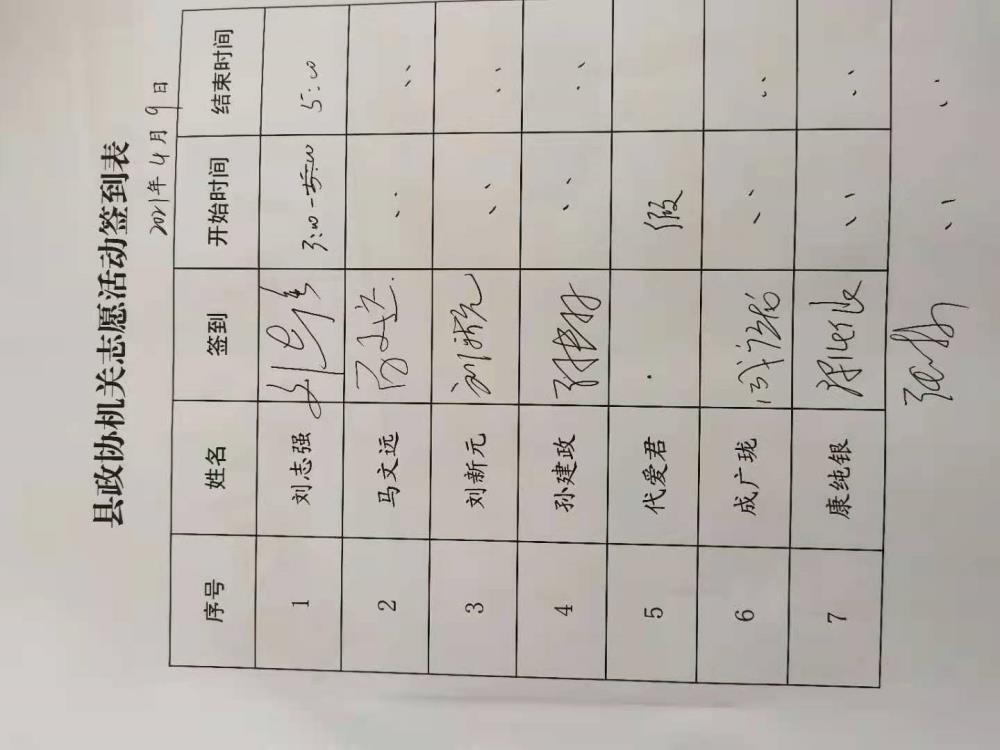 县政协机关志愿活动签到表
2021年4月9日
序号 姓名 签到 开始时间 结束时间
1 刘志强 刘志强 3:00-5:00 5:00
2 马文远 马文远 〃 〃
3 刘新元 刘新元 〃 〃
4 孙建政 孙建政 〃 〃
5 代爱君 假
6 成广珑 成广珑 〃 〃
7 康纯银 康纯银 〃 〃
〃 〃